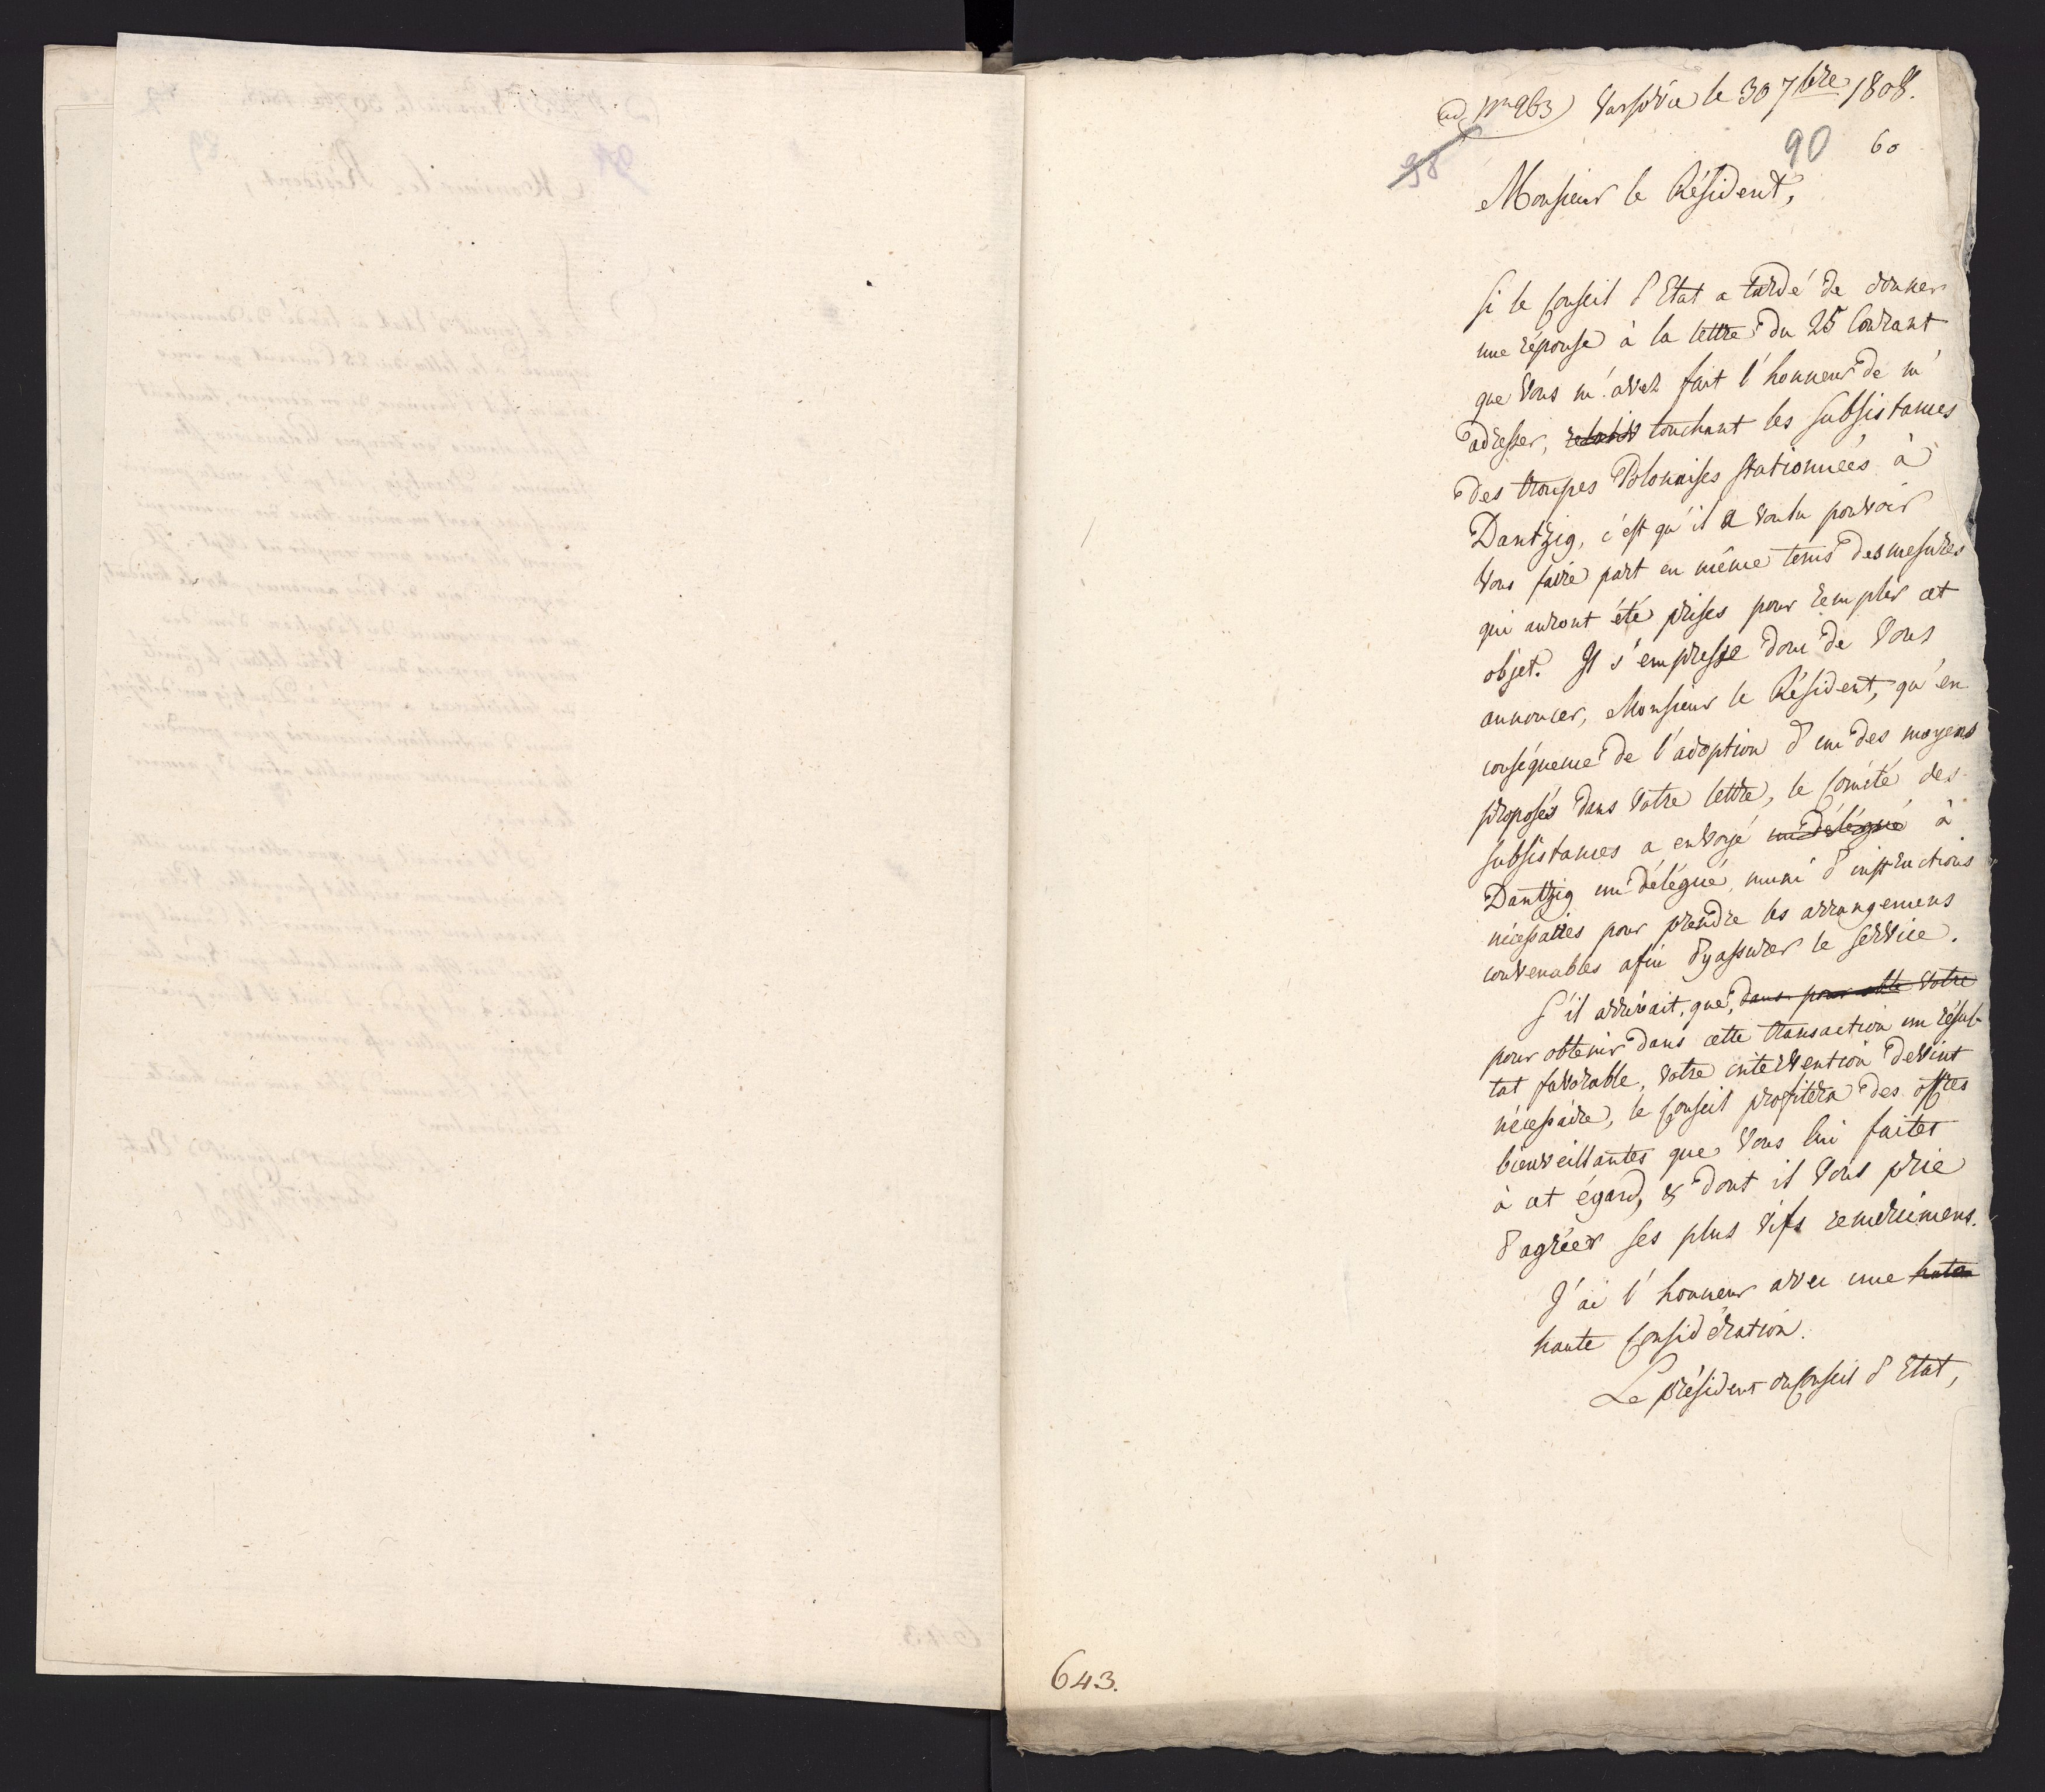 ad Nrm 963) Varsovie le 30 7bre 1808.
98
90 60
Monsieur le Résident,
Si le Conseil d'Etat a tardé de donner
une réponse à la lettre du 25 Courant
que Vous m'avez fait l'honneur de m'
adresser, touchant les subsistances
des troupes Polonaises stationnées à
Dantzig, c'est qu'il a voulu pouvoir
Vous faire part en même tems des mesures
qui auront été prises pour remplir cet
objet. Il s'empresse donc de Vous
annoncer, Monsieur le Résident, qu'en
conséquence de l'adoption d'un des moyens
proposés dans Votre lettre, le Comité des
subsistances a envoyé un délégué à
Dantzig un délégué, muni d'instructions
nécessaires pour prendre les arrangemens
convenables afin d'y assurer le service.
S'il arrivait, que, dans pour cette Votre
pour obtenir dans cette transaction un résul-
tat favorable, Votre intervention devint
nécessaire, le Conseil profitera des offres
bienveillantes que Vous lui faites
à cet égard, & dont il Vous prie
d'agréer ses plus vifs remercimens.
J'ai l'honneur avec une
haute Considération.
Le président du Conseil d'Etat,
643.